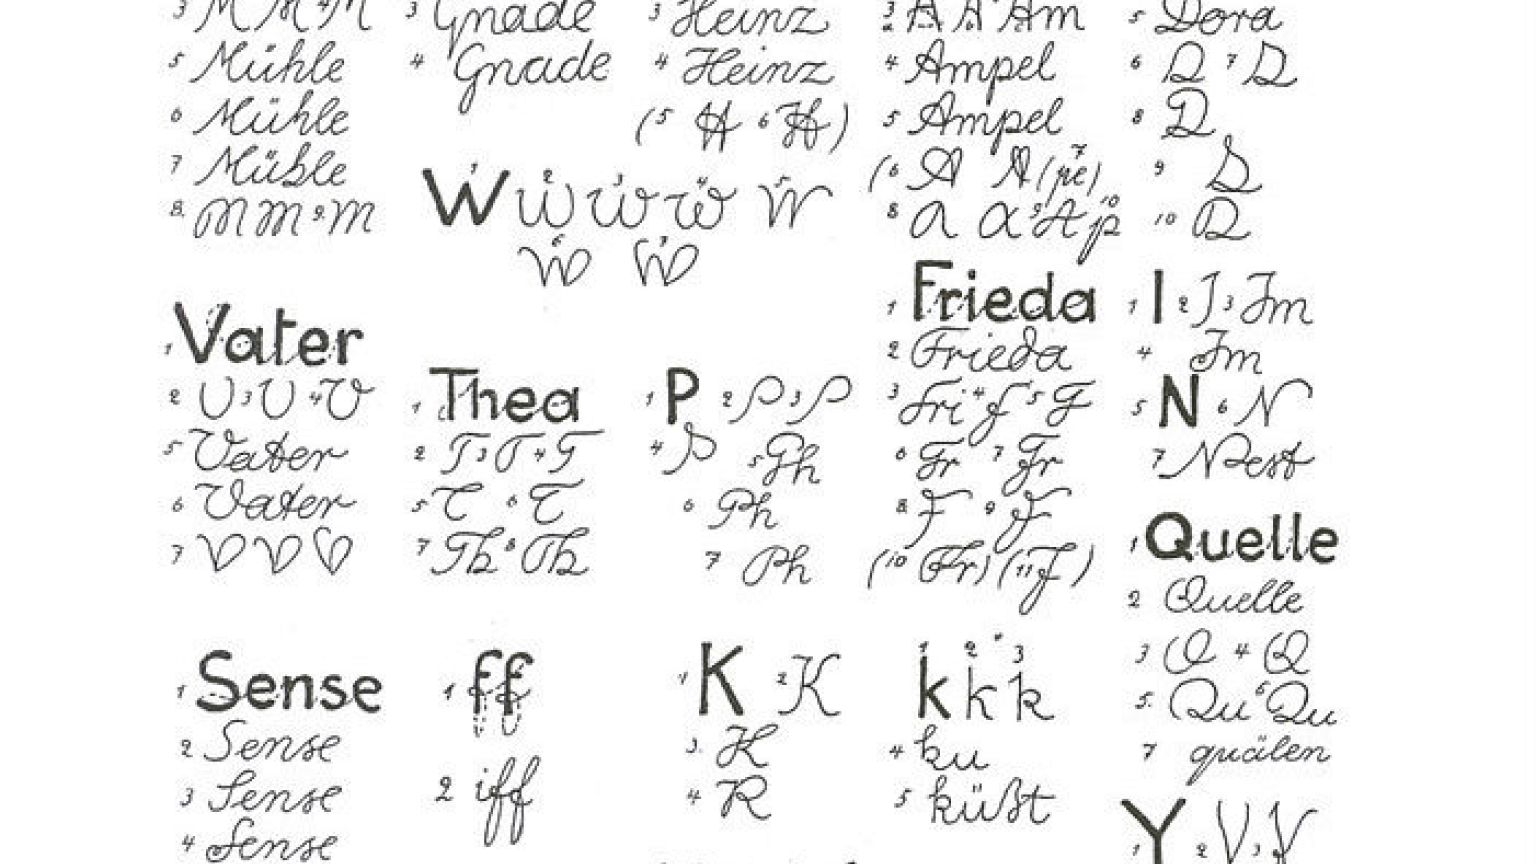 3 M M 4 M
5 Mühle
6 Mühle
7 Mühle
8. M M 9. M
1 Vater
2 V 3 V 4 V
5 Vater
6 Vater
7 V V V
1 Sense
2 Sense
3 Sense
4 Sense
3 Gnade
4 Gnade
3 Heinz
4 Heinz
(5 H 6 H)
1 W 2 W 3 W 4 W 5 W
6 W 7 W
1 Thea
2 T 3 T 4 T
5 T 6 T
7 Th 8 Th
1 ff
2 iff
1 P 2 P 3 P
4 P 5 Ph
6 Ph
7 Ph
1 K 2 K
3. K
4 K
A A Am
4 Ampel
5 Ampel
(6 A A (pe) 7
8 A A 9 A 10 p
1 Frieda
2 Frieda
3 Fri 4 F 5 F
6 Fr 7 Fr
8 F 9 F
(10 Fr) (11 F)
1 k 2 k 3 k
4 ku
5 küßt
5 Dora
6 D 7 D
8 D
9 D
10 D
1 I 2 I 3 Im
4 Im
5 N 6 N
7 Nest
1 Quelle
2 Quelle
3 Q 4 Q
5. Qu 6 Qu
7 quälen
1 Y 2 Y 3 Y